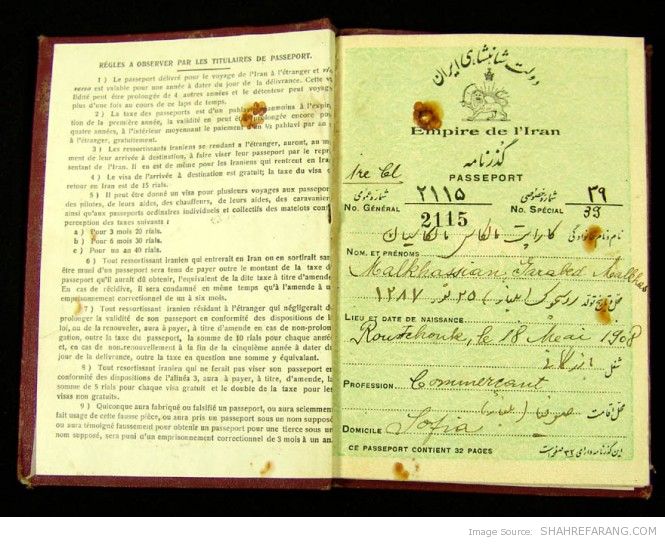 RÈGLES A OBSERVER PAR LES TITULAIRES DE PASSEPORT.
1 ) Le passeport délivré pour le voyage de l'Iran à l'étranger et
versa est valable pour une année à dater du jour de la délivrance. Cette
lidité peut être prolongée de 4 autres années et le détenteur peut voyag
plus d'une fois au cours de ce laps de temps.
2 ) La taxe des passeports est d'un pahlavi
tion de la première année, la validité en peut être prolongée encore po
quatre années, à l'intérieur moyennant le paiement d'un ½ pahlavi par an
à l'étranger, gratuitement.
3 ) Les ressortissants iraniens se rendant à l'étranger, auront, au
ment de leur arrivée à destination, à faire viser leur passeport par le repr
sentant de l'Iran. Il en est de même pour les Iraniens qui rentrent en Ira
4 ) Le visa de l'arrivée à destination est gratuit; la taxe du visa
retour en Iran est de 15 rials.
5 ) Il peut être donné un visa pour plusieurs voyages aux passepor
des pilotes, de leurs aides, des chauffeurs, de leurs aides, des caravanier
ainsi qu'aux passeports ordinaires individuels et collectifs des matelots
perception des taxes suivantes :
a ) Pour 3 mois 20 rials.
b ) Pour 6 mois 30 rials.
c ) Pour un an 40 rials.
6 ) Tout ressortissant iranien qui entrerait en Iran ou en sortirait san
être muni d'un passeport sera tenu de payer outre le montant de la taxe d
passeport qu'il aurait dû obtenir, l'équivalent de la dite taxe à titre d'amende
En cas de récidive, il sera condamné en même temps qu'à l'amende à u
emprisonnement correctionnel de un à six mois.
7 ) Tout ressortissant iranien résidant à l'étranger qui négligerait d
prolonger la validité de son passeport en conformité des dispositions de l
loi, ou de la renouveler, aura à payer, à titre d'amende, en cas de non-prolon-
gation, outre la taxe du passeport, la somme de 10 rials pour chaque anné
et, en cas de non-renouvellement à la fin de la cinquième année à dater d
jour de la délivrance, outre la taxe en question une somme y équivalant.
8 ) Tout ressortissant iranien qui ne ferait pas viser son passeport e
conformité des dispositions de l'alinéa 3, aura à payer, à titre d'amende, la
somme de 5 rials pour chaque visa gratuit et le double de la taxe pour les
visas non gratuits.
9 ) Quiconque aura fabriqué ou falsifié un passeport, ou aura sciemment
fait usage de cette fausse pièce, ou aura pris un passeport sous un nom supposé
ou aura témoigné faussement pour obtenir un passeport pour une tierce sous un
nom supposé, sera puni d'un emprisonnement correctionnel de 3 mois à un an.
دولت شاهنشاهی ایران
Empire de l'Iran
گذرنامه
PASSEPORT
1re Cl
شماره عمومی ۲۱۱۵ شماره خصوصی ۳۹
No. GÉNÉRAL 2115 No. SPÉCIAL 39
نام و نام خانوادگی
NOM ET PRÉNOMS
Malkhassian Garabed Malkhas
۱۲۸۷
LIEU ET DATE DE NAISSANCE
Roustchouk, le 18 Mai 1908
شغل
PROFESSION Commerçant
محل اقامت
DOMICILE Sofia
CE PASSEPORT CONTIENT 32 PAGES
این گذرنامه دارای ۳۲ صفحه است
Image Source: SHAHREFARANG.COM